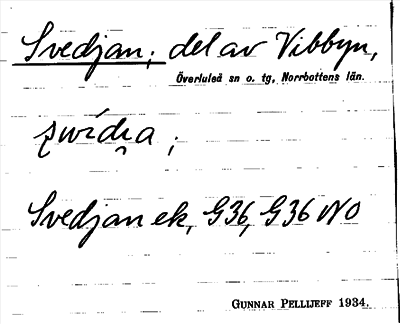 Svedjan; del av Vibbyn,
Överluleå sn o. tg, Norrbottens län.
ʂwídɪ̯a ;
Svedjan ek, G36, G36 NO
GUNNAR PELLIJEFF 1934.